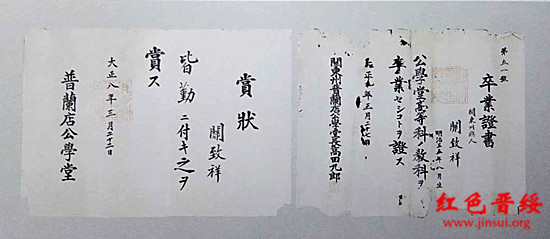 卒業證書
關東州民人
關致祥
明治三十五年八月生
公學堂高等科ノ教科ヲ
卒業セシコトヲ證ス
大正九年三月二十六日
關東州普蘭店公學堂長高田九郎
賞狀
關致祥
皆勤ニ付キ之ヲ
賞ス
大正八年三月二十二日
普蘭店公學堂
红色晋绥
www.jinsui.org